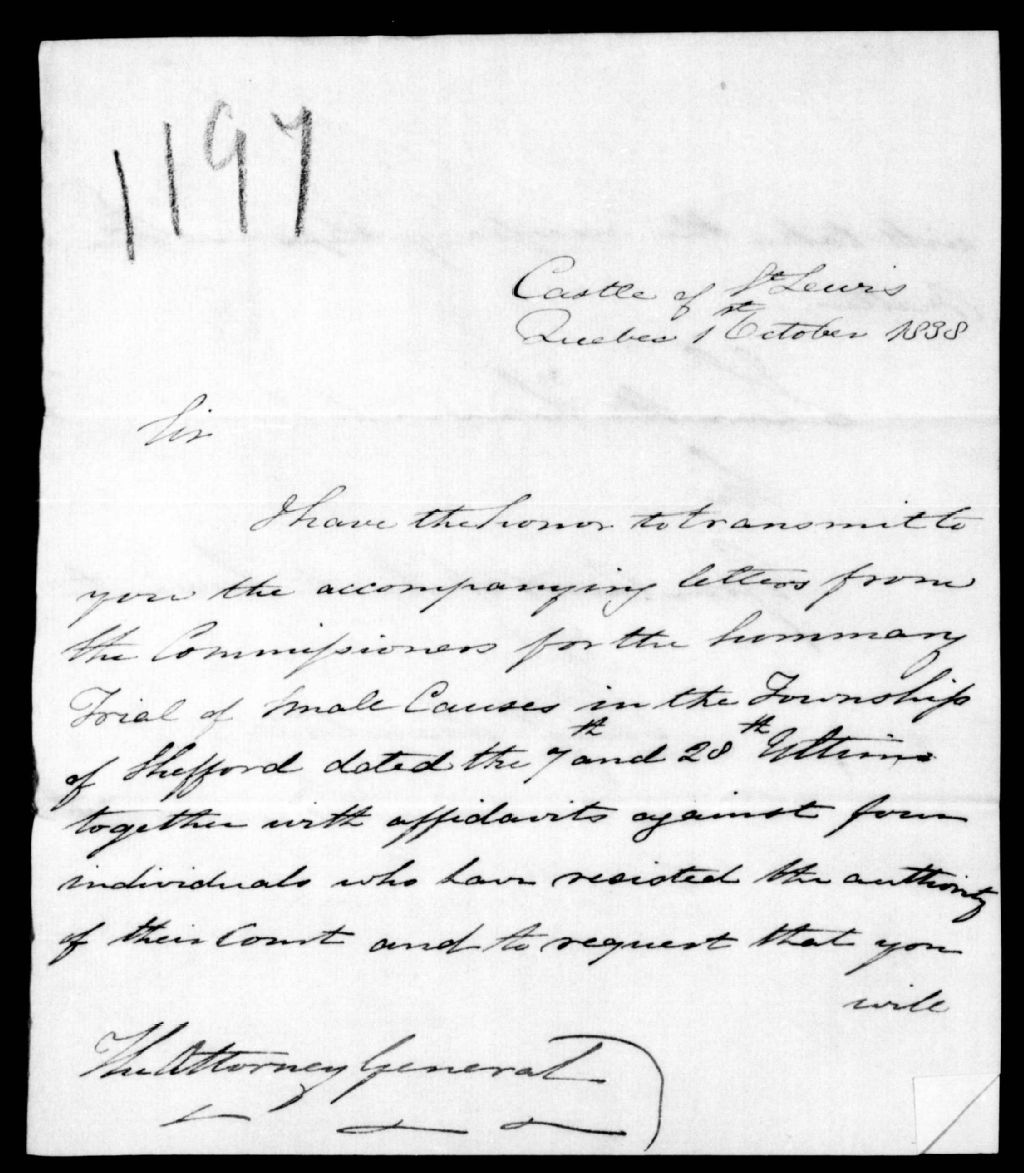 1197
Castle of St Lewis
Quebec 1st October 1838
Sir
I have the honor to transmit to
you the accompanying letters from
the Commissioners for the Summary
Trial of Small Causes in the Township
of Shefford dated the 7th and 28th Ultimo
together with affidavits against four
individuals who have resisted the authority
of their Court and to request that you
will
The Attorney General